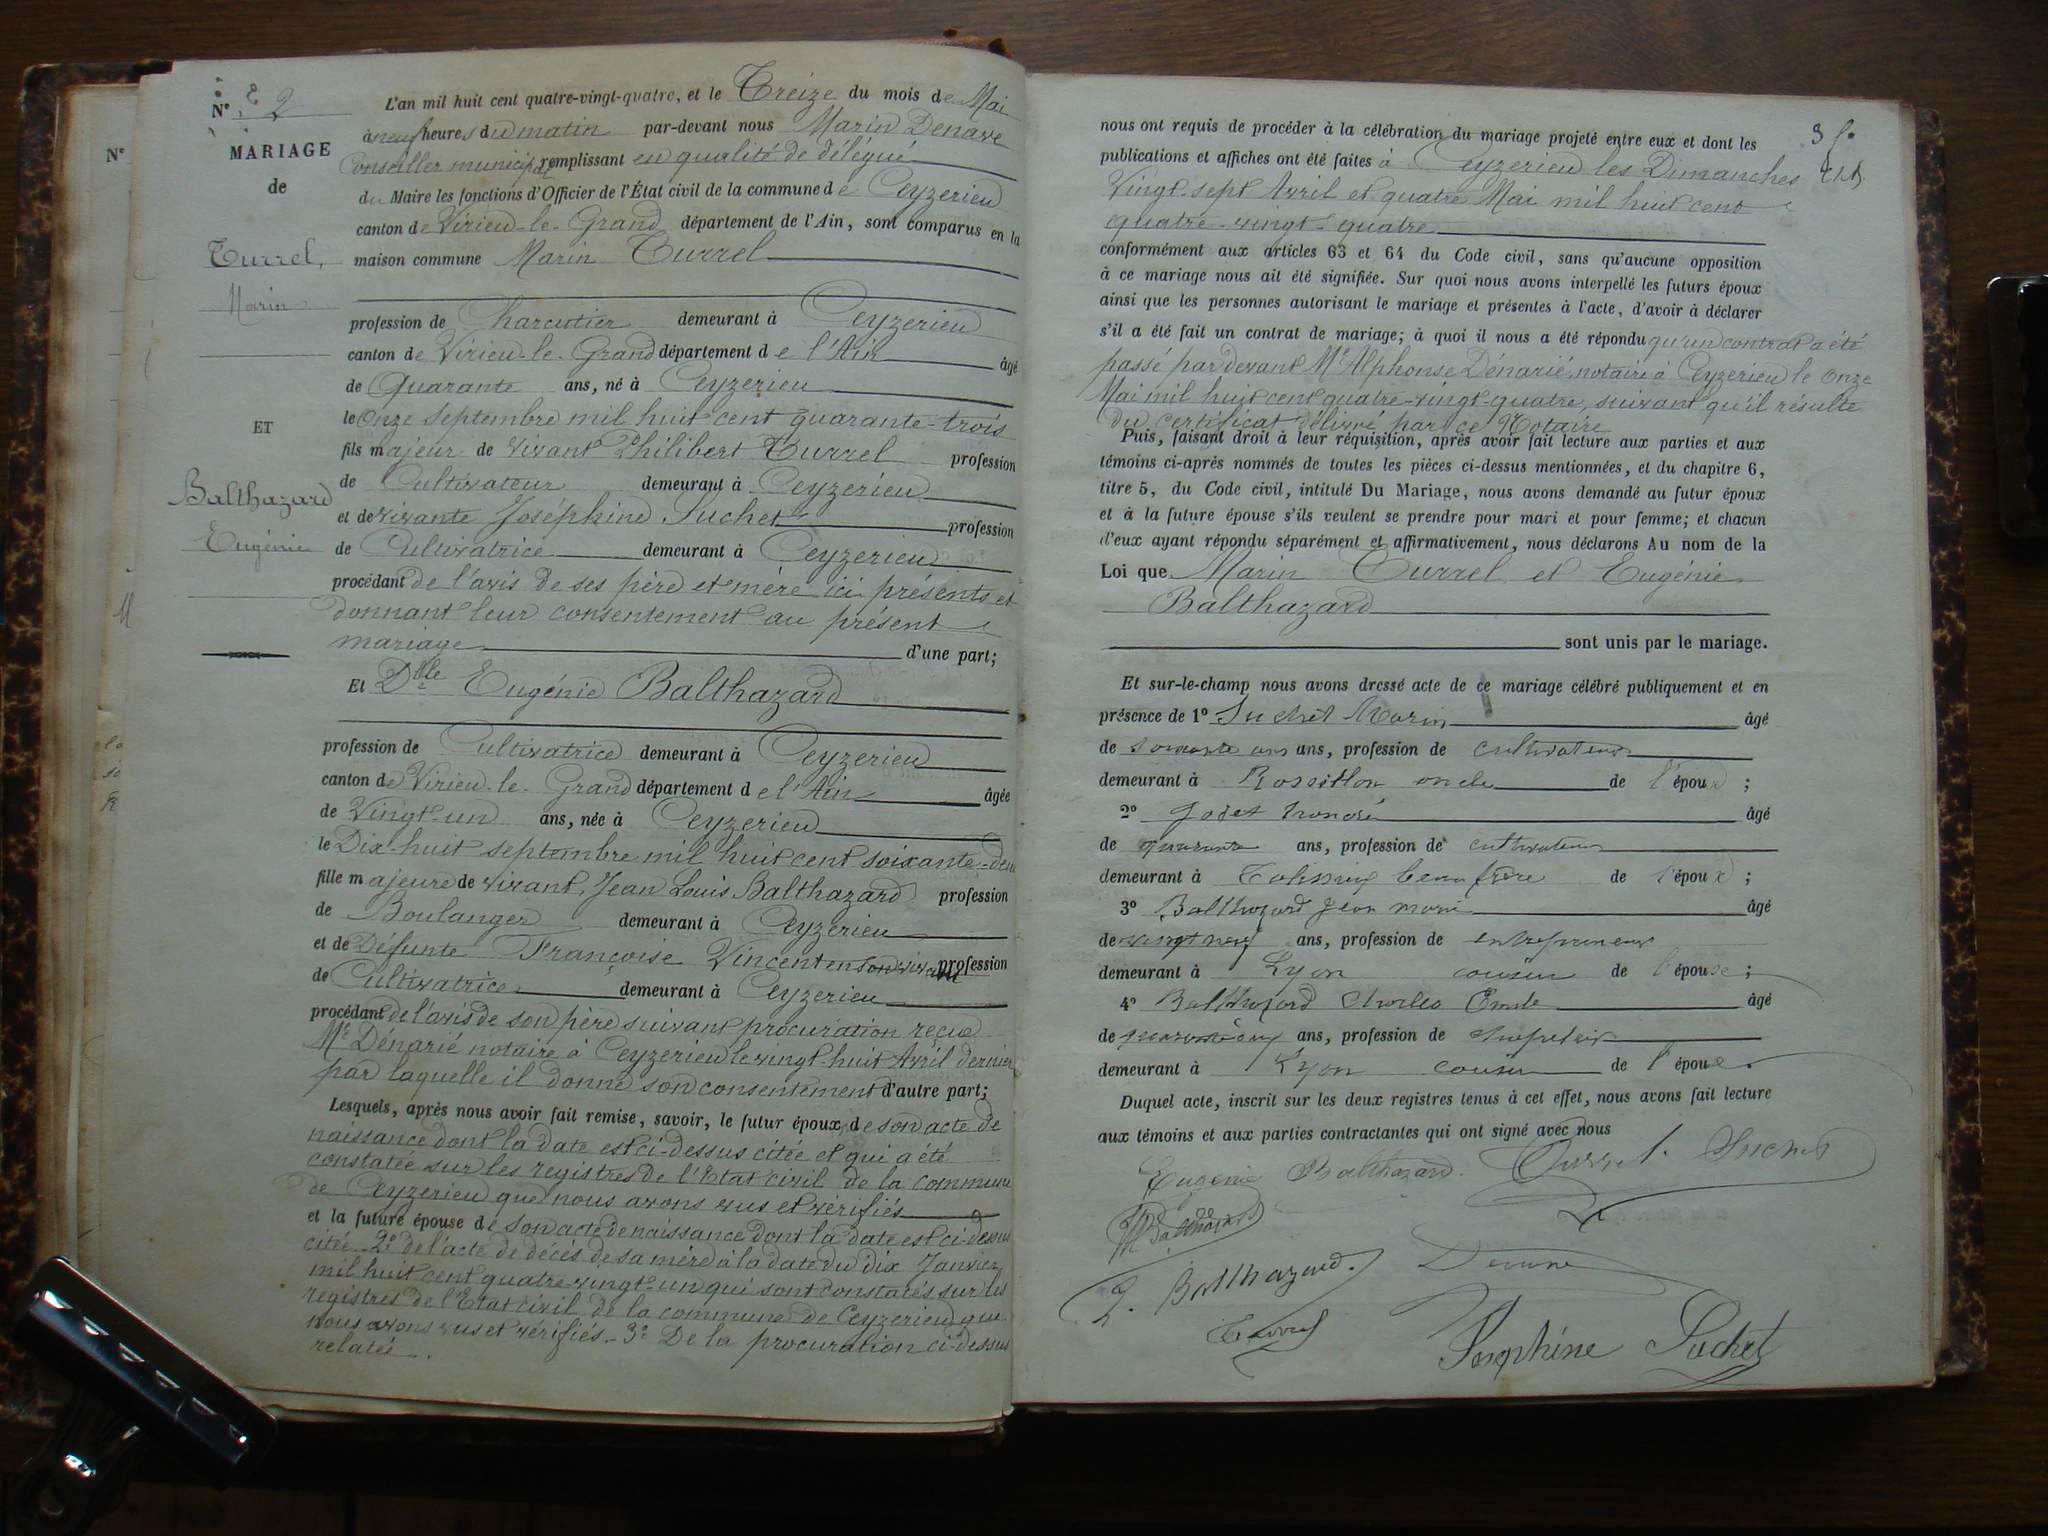 N° 2
MARIAGE
de
Turrel,
Marin
ET
Balthazard
Eugénie
L'an mil huit cent quatre-vingt-quatre, et le Treize du mois de Mai
à neuf heures du matin par-devant nous Marin Denave
Conseiller municipal remplissant en qualité de délégué
du Maire les fonctions d'Officier de l'État civil de la commune de Ceyzerieu
canton de Virieu-le-Grand département de l'Ain, sont comparus en la
maison commune Marin Turrel
profession de Charcutier demeurant à Ceyzerieu
canton de Virieu-le-Grand département de l'Ain âgé
de Quarante ans, né à Ceyzerieu
le Onze septembre mil huit cent quarante-trois
fils majeur de vivant Philibert Turrel profession
de Cultivateur demeurant à Ceyzerieu
et de vivante Joséphine Suchet profession
de Cultivatrice demeurant à Ceyzerieu
procédant de l'avis de ses père et mère ici présents et
donnant leur consentement au présent
mariage d'une part;
Et Dlle Eugénie Balthazard
profession de Cultivatrice demeurant à Ceyzerieu
canton de Virieu-le-Grand département de l'Ain âgée
de Vingt-un ans, née à Ceyzerieu
le Dix-huit septembre mil huit cent soixante-deux
fille majeure de vivant Jean Louis Balthazard profession
de Boulanger demeurant à Ceyzerieu
et de Défunte Françoise Vincent en son vivant profession
de Cultivatrice demeurant à Ceyzerieu
procédant de l'avis de son père suivant procuration reçue
Me Dénarié notaire à Ceyzerieu le vingt-huit Avril dernier
par laquelle il donne son consentement d'autre part;
Lesquels, après nous avoir fait remise, savoir, le futur époux de son acte de
naissance dont la date est ci-dessus citée et qui a été
constatée sur les registres de l'Etat civil de la commune
de Ceyzerieu que nous avons vus et vérifiés
et la future épouse de son acte de naissance dont la date est ci-dessus
citée 2° de l'acte de décès de sa mère à la date du dix Janvier
mil huit cent quatre-vingt-un qui sont constatés sur les
registres de l'Etat civil de la commune de Ceyzerieu que
nous avons vus et vérifiés - 3° De la procuration ci-dessus
relatée.
3
nous ont requis de procéder à la célébration du mariage projeté entre eux et dont les
publications et affiches ont été faites à Ceyzerieu les Dimanches
Vingt-sept Avril et quatre Mai mil huit cent
quatre-vingt-quatre
conformément aux articles 63 et 64 du Code civil, sans qu'aucune opposition
à ce mariage nous ait été signifiée. Sur quoi nous avons interpellé les futurs époux
ainsi que les personnes autorisant le mariage et présentes à l'acte, d'avoir à déclarer
s'il a été fait un contrat de mariage; à quoi il nous a été répondu qu'un contrat a été
passé par devant Me Alphonse Dénarié, notaire à Ceyzerieu le onze
Mai mil huit cent quatre-vingt-quatre, suivant qu'il résulte
du certificat délivré par ce Notaire
Puis, faisant droit à leur réquisition, après avoir fait lecture aux parties et aux
témoins ci-après nommés de toutes les pièces ci-dessus mentionnées, et du chapitre 6,
titre 5, du Code civil, intitulé Du Mariage, nous avons demandé au futur époux
et à la future épouse s'ils veulent se prendre pour mari et pour femme; et chacun
d'eux ayant répondu séparément et affirmativement, nous déclarons Au nom de la
Loi que Marin Turrel et Eugénie
Balthazard
sont unis par le mariage.
Et sur-le-champ nous avons dressé acte de ce mariage célébré publiquement et en
présence de 1° Suchet Marin âgé
de soixante ans ans, profession de cultivateur
demeurant à Rossillon oncle de l'époux;
2° Godet honoré âgé
de quarante ans, profession de cultivateur
demeurant à beau frère de l'époux;
3° Balthazard Jean marie âgé
de vingt neuf ans, profession de entrepreneur
demeurant à Lyon cousin de l'épouse;
4° Balthazard Charles Emile âgé
de ans, profession de
demeurant à Lyon cousin de l'épouse.
Duquel acte, inscrit sur les deux registres tenus à cet effet, nous avons fait lecture
aux témoins et aux parties contractantes qui ont signé avec nous
Eugénie Balthazard. Turrel. Suchet
Balthazard
Balthazard. Denave
Turrel
Joséphine Suchet